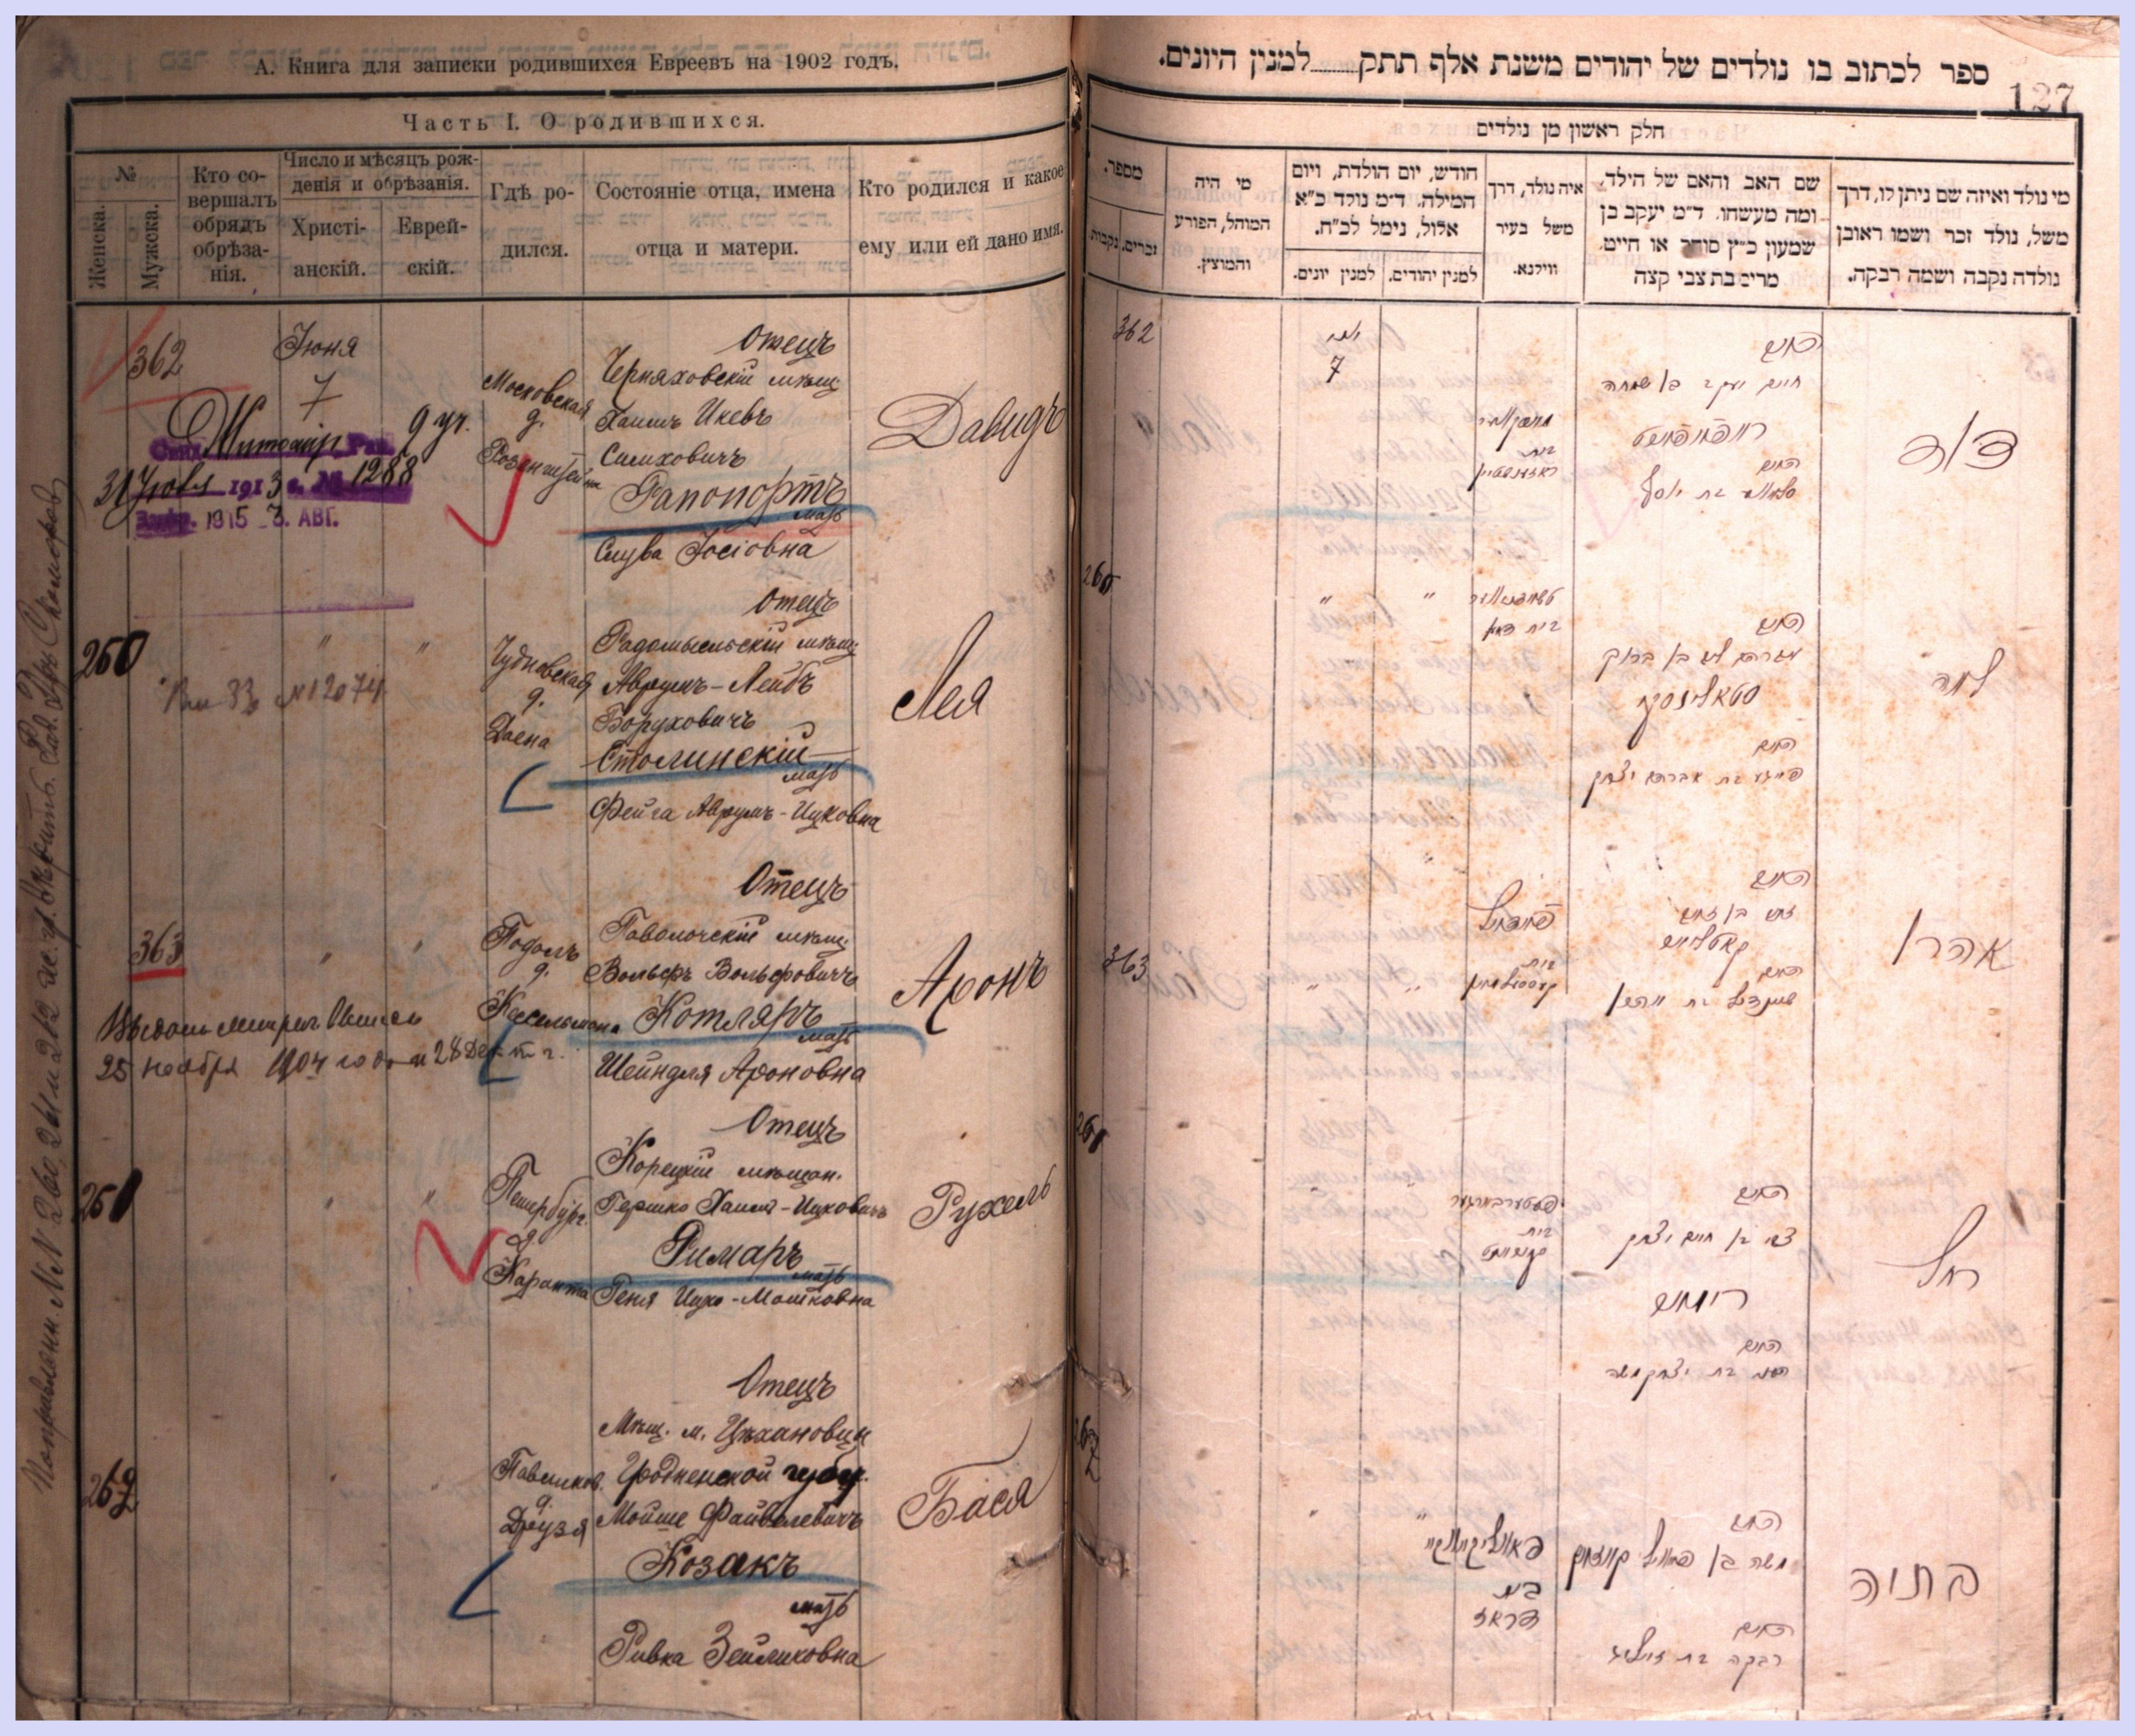 А. Книга для записки родившихся Евреевъ на 1902 годъ.
Часть I. О родившихся.
№
Женска.
Мужска.
Кто со-
вершалъ
обрядъ
обрѣза-
нія.
Число и мѣсяцъ рож-
денія и обрѣзанія.
Христі-
анскій.
Еврей-
скій.
Гдѣ ро-
дился.
Состояніе отца, имена
отца и матери.
Кто родился и какое
ему или ей дано имя.
362
Іюня
7
9 уг.
Житомір. Рав.
31 Іюля 1913 г. № 1288
1915 3. АВГ.
Московская
д.
Розенштейна
Отецъ
Черняховскій мѣщ.
Хаимъ Икевъ
Симховичъ
Рапопортъ
мать
Слува Іосіовна
Давидъ
260
"
"
№ 12074
Чудновская
д.
Даена
Отецъ
Радомысльскій мѣщ.
Аврумъ-Лейбъ
Боруховичъ
Столинскій
мать
Фейга Аврумъ-Ицковна
Лея
363
"
"
25 ноября 1904 года и 28 Дек.
Подолъ
д.
Кесельмана
Отецъ
Паволочскій мѣщ.
Вольфъ Вольфовичъ
Котляръ
мать
Шейндля Ароновна
Аронъ
261
"
"
Петербург.
д.
Каранта
Отецъ
Корецкій мѣщан.
Гершко Хаимъ-Ицковичъ
Римаръ
мать
Реня Ицко-Мошковна
Рухель
262
"
"
Павликов.
д.
Друзя
Отецъ
Мѣщ. м. Цѣхановцы
Гродненской губ.
Мойше Файвелевичъ
Козакъ
мать
Ривка Зейликовна
Бася
ספר לכתוב בו נולדים של יהודים משנת אלף תתק למנין היונים.
127
חלק ראשון מן נולדים
מי נולד ואיזה שם ניתן לו, דרך
משל, נולד זכר ושמו ראובן
נולדה נקבה ושמה רבקה.
שם האב והאם של הילד,
ומה מעשהו. ד״מ יעקב בן
שמעון כ״ץ סוחר או חייט,
מרים בת צבי קצה
איה נולד, דרך
משל בעיר
ווילנא.
חודש, יום הולדת, ויום
המילה. ד״מ נולד כ״א
אלול, נימל לכ״ח.
למנין יהודים.
למנין יונים.
מי היה
המוהל, הפורע
והמוצץ.
מספר.
זכרים.
נקבות.
362
7
בית
האב
חיים יעקב בן שמחה
ראפאפארט
האם
בת יוסף
דוד
260
"
"
בית
האב
אברהם ליב בן ברוך
סטאלינסקי
האם
פייגע בת אברהם יצחק
לאה
363
"
"
פאדאל
בית
קעסעלמאן
האב
זאב בן זאב
קאטליאר
האם
שיינדל בת אהרן
אהרן
261
"
"
פעטערבורגער
בית
האב
צבי בן חיים יצחק
רימאר
האם
בת יצחק משה
רחל
262
"
"
בית
האב
משה בן פייוויל קאזאק
האם
רבקה בת זייליג
בתיה